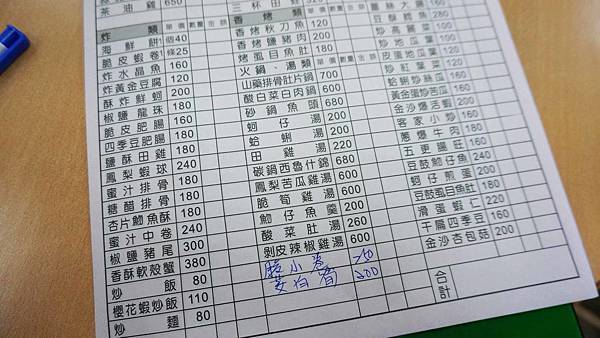 茶油雞 650
炸類 單價 數量 金額
海鮮餅 1個40
脆皮蝦卷 1條25
炸水晶魚 160
炸黃金豆腐 120
酥炸鮮蚵 200
椒鹽龍珠 180
脆皮肥腸 160
四季豆肥腸 180
鹽酥田雞 180
鳳梨蝦球 240
蜜汁排骨 180
糖醋排骨 180
杏片魩魚酥 180
蜜汁中卷 240
椒鹽豬尾 300
香酥軟殼蟹 380
炒飯 80
櫻花蝦炒飯 110
炒麵 80
三杯田雞
香烤類
香烤秋刀魚 120
香烤鹽豬肉 200
烤虱目魚肚 180
火鍋、湯類 單價 數量 金額
山藥排骨肚片鍋 700
酸白菜白肉鍋 600
砂鍋魚頭 680
蚵仔湯 200
蛤蜊湯 200
田雞湯 220
碳鍋西魯什錦 680
鳳梨苦瓜雞湯 600
脆筍雞湯 600
魩仔魚羹 200
酸菜肚湯 260
剝皮辣椒雞湯 600
脆小卷 250
芝白香 200
豆酥鱈魚 280
炒高麗菜 100
炒地瓜葉 100
皮蛋地瓜葉 160
炒紅葉菜 120
蛤蜊炒絲瓜 160
黃金蛋炒苦瓜 160
金沙爆苦蝦 200
客家小炒 160
蔥爆牛肉 180
五更腸旺 160
豆鼓魩仔魚 200
蚵仔煎蛋 200
豆鼓虱目魚肚 180
滑蛋蝦仁 200
干扁四季豆 160
金沙杏包菇 200
合計